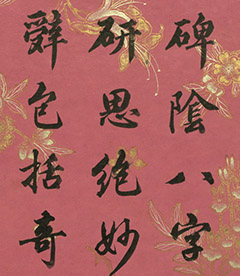 碑陰八字
研思絶妙
辤包括奇